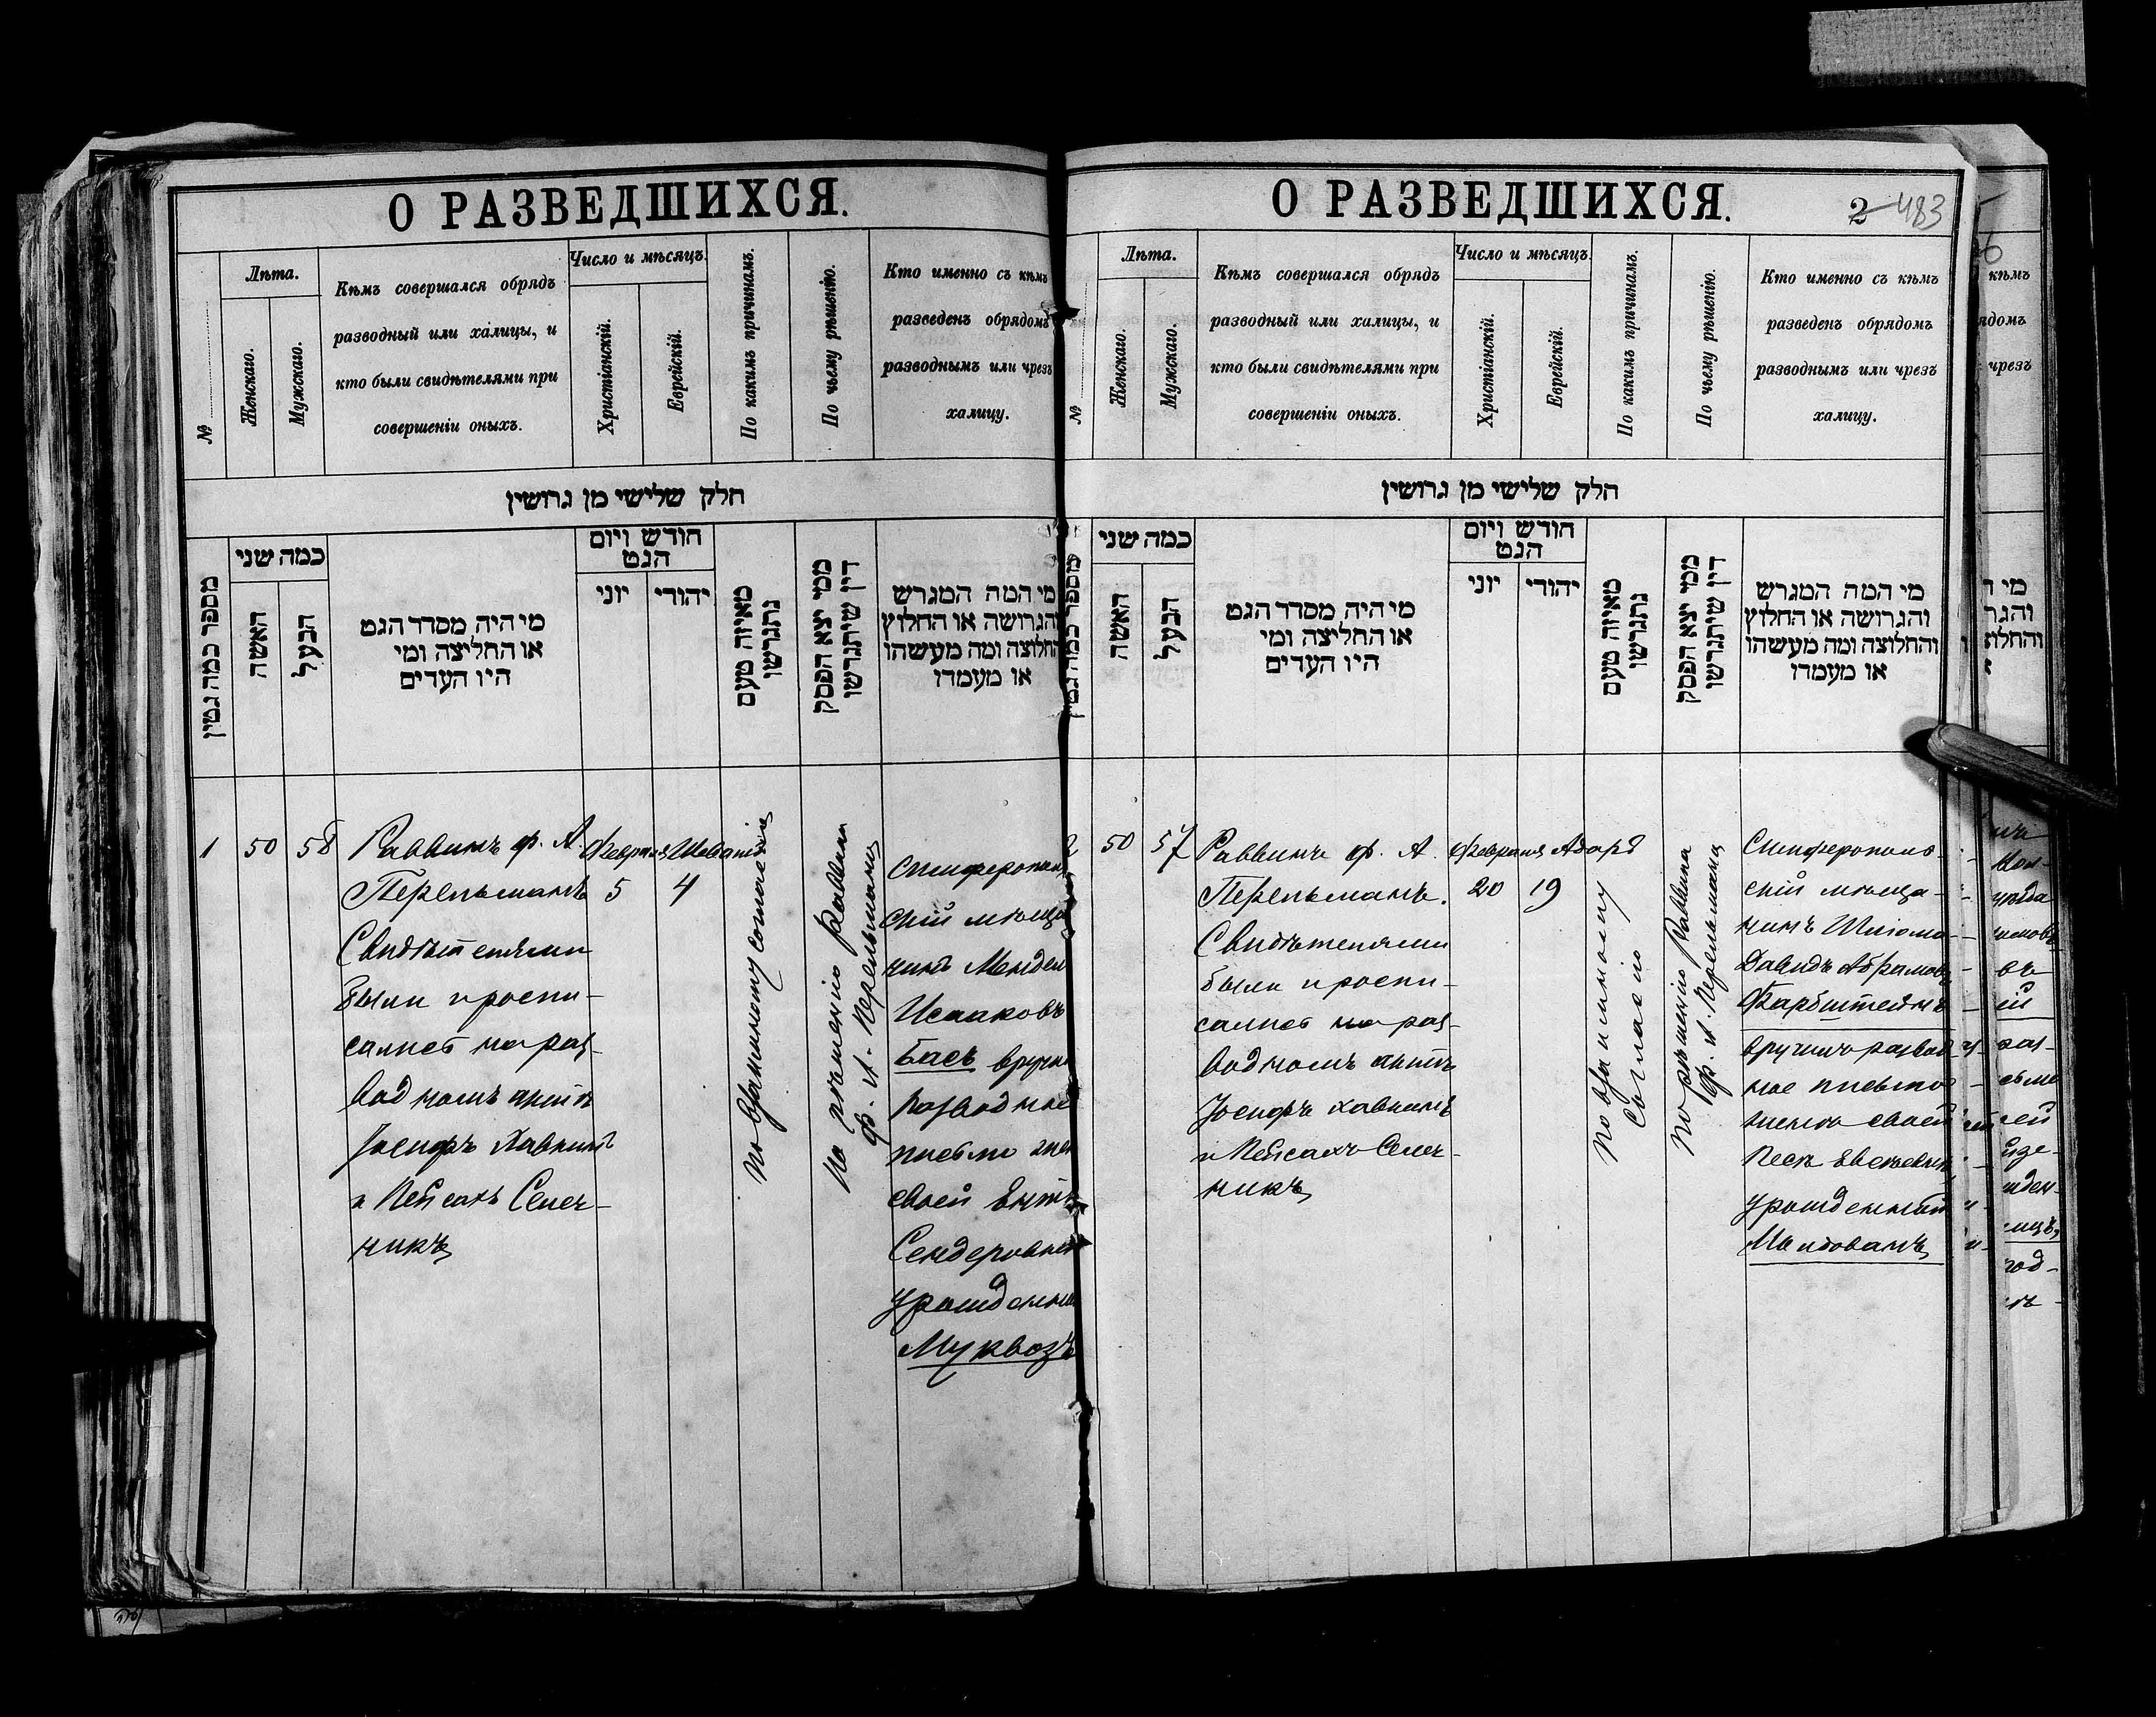 О РАЗВЕДШИХСЯ.
№
Лѣта.
Женскаго.
Мужскаго.
Кѣмъ совершался обрядъ
разводный или халицы, и
кто были свидѣтелями при
совершеніи оныхъ.
Число и мѣсяцъ.
Христіанскій.
Еврейскій.
По какимъ причинамъ.
По чьему рѣшенію.
Кто именно съ кѣмъ
разведенъ обрядомъ
разводнымъ или чрезъ
халицу.
חלק שלישי מן גרושין
מספר כמה גטין
כמה שני
האשה
הבעל
מי היה מסדר הגט
או החליצה ומי
היו העדים
חודש ויום
הגט
יוני
יהודי
מאיזה טעם
נתגרשו
ממי יצא הפסק
דין שיתגרשו
מי המה המגרש
והגרושה או החלוץ
והחלוצה ומה מעשהו
או מעמדו
1
50
58
Раввинъ ф. А.
Перельманъ
Свидѣтелями
были и роспи-
сались на раз-
водномъ актѣ
Іосифъ Хавкинъ
и Пейсахъ Селеч-
никъ
Февраля
5
Шебатъ
4
По взаимному согласію
По рѣшенію Раввина
ф. А. Перельмана
Симферополь
скій мѣща
нинъ Мендель
Исааковъ
Басъ вручи
разводное
письмо жен
своей
Сендеровне
урожденни
Муквозъ
О РАЗВЕДШИХСЯ.
2 483
№
Лѣта.
Женскаго.
Мужскаго.
Кѣмъ совершался обрядъ
разводный или халицы, и
кто были свидѣтелями при
совершеніи оныхъ.
Число и мѣсяцъ.
Христіанскій.
Еврейскій.
По какимъ причинамъ.
По чьему рѣшенію.
Кто именно съ кѣмъ
разведенъ обрядомъ
разводнымъ или чрезъ
халицу.
חלק שלישי מן גרושין
מספר כמה גטין
כמה שני
האשה
הבעל
מי היה מסדר הגט
או החליצה ומי
היו העדים
חודש ויום
הגט
יוני
יהודי
מאיזה טעם
נתגרשו
ממי יצא הפסק
דין שיתגרשו
מי המה המגרש
והגרושה או החלוץ
והחלוצה ומה מעשהו
או מעמדו
2
50
57
Раввинъ ф. А.
Перельманъ.
Свидѣтелями
были и роспи-
сались на раз-
водномъ актѣ
Іосифъ Хавкинъ
и Пейсахъ Селеч-
никъ
Февраля
20
Адаръ
19
По взаимному
согласію
По рѣшенію Раввина
Ф. А. Перельмана
Симферополь-
скій мѣща-
нинъ Шліома-
Давидъ Абрамовъ
Фарбштейнъ
вручилъ развод
ное письмо
женѣ своей
Песѣ
урожденной